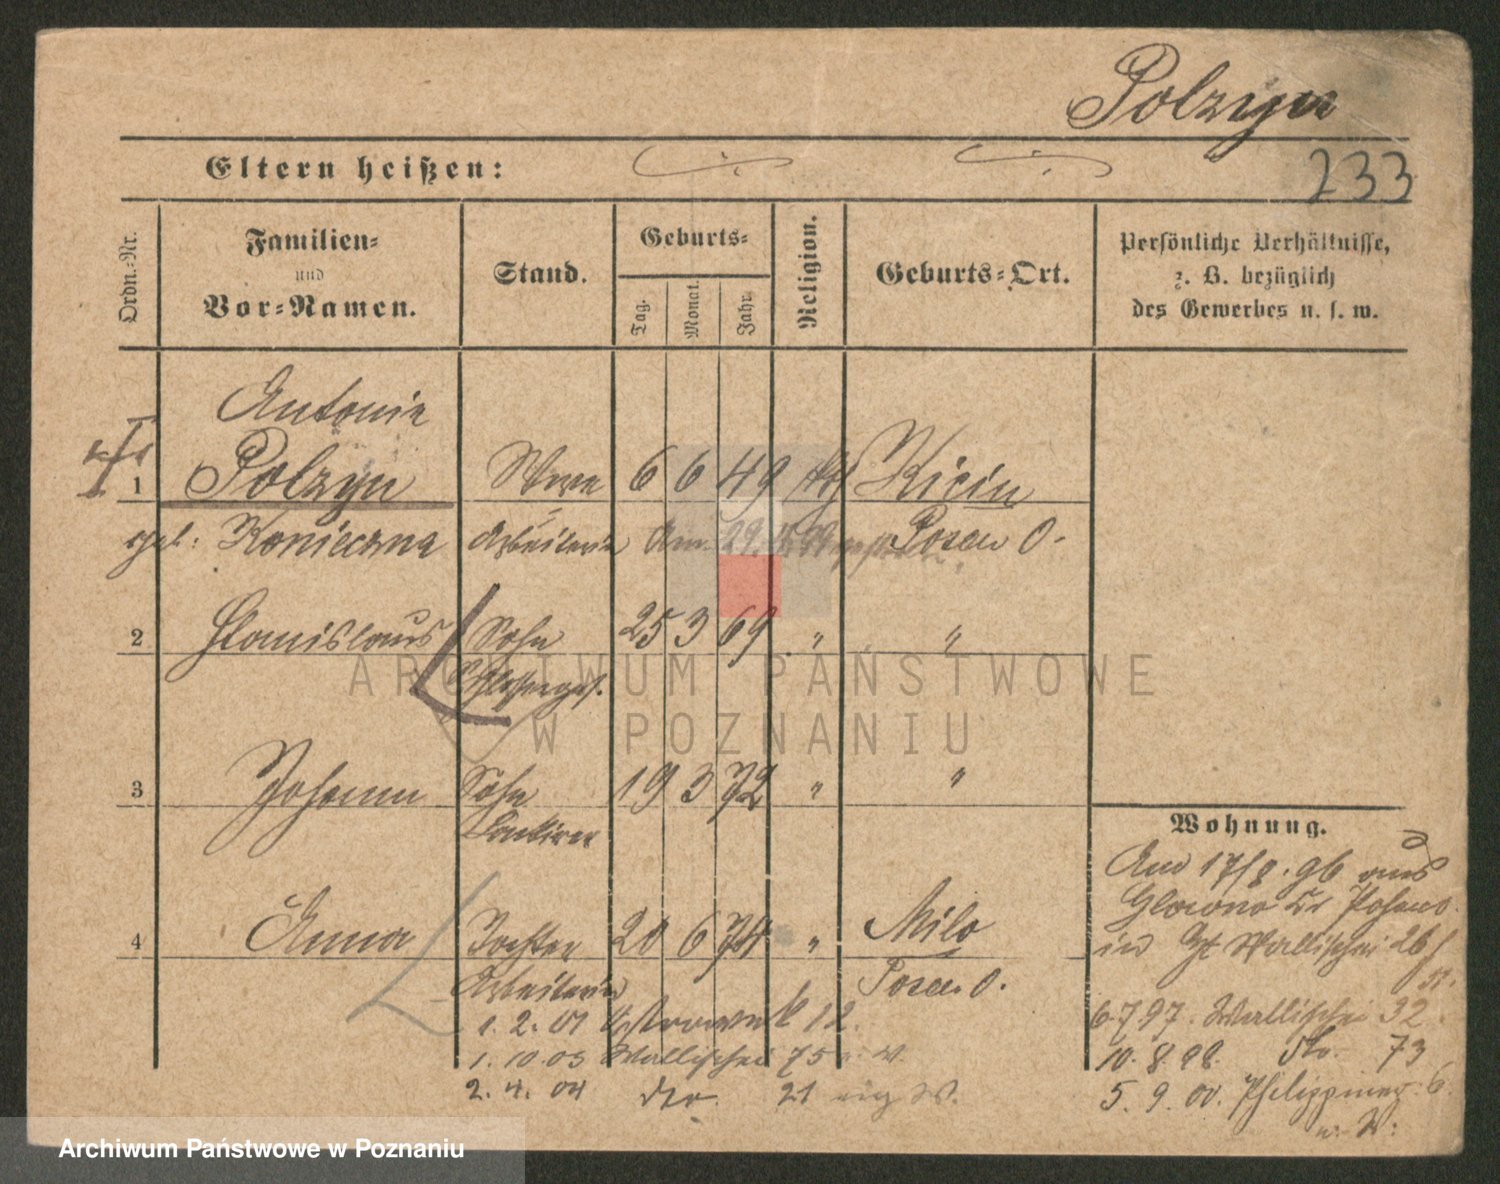 Polzyn
Eltern heißen:
233
Ordn.-Nr.
Familien-
und
Vor-Namen.
Stand.
Geburts-
Tag.
Monat.
Jahr.
Religion.
Geburts-Ort.
Persönliche Verhältnisse,
z. B. bezüglich
des Gewerbes u. s. w.
Antonie
1 Polzyn Wwe 6 6 49 kth Kicin
geb: Konieczna Arbeiterin Am 29. Posen O.
2 Stanislaus Sohn 25 3 69 " "
Schlosserges.
ARCHIWUM PAŃSTWOWE
W POZNANIU
3 Johann Sohn 19 3 72 " "
4 Anna Tochter 20 6 74 " Milo
Arbeiterin Posen O.
1. 2. 01 12.
1. 10. 03 Wallischei 75
2. 4. 04 dto. 21 W.
Wohnung.
Am 17/8. 96 aus
Glowno Kr Posen O.
in Wallischei 26/
6.7.97. Wallischei 32
10. 8. 98. dto. 73
5. 9. 00. Philippiner 6
Archiwum Państwowe w Poznaniu